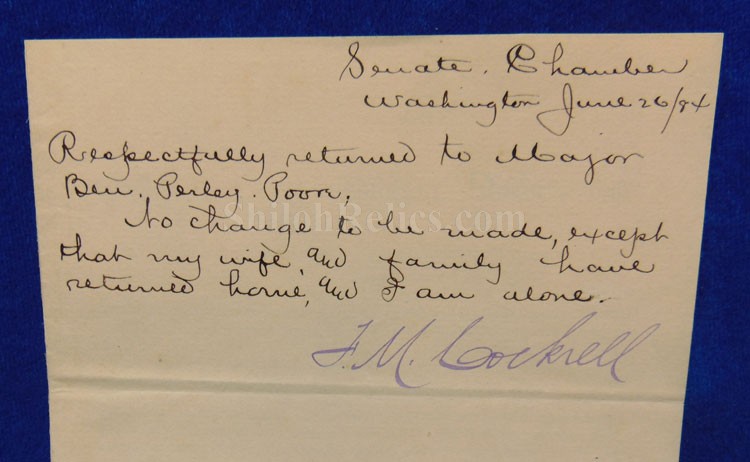 Senate. Chamber
Washington June 26/84
Respectfully returned to Major
Ben, Perley. Poore,
No change to be made, except
that my wife and family have
returned home, and I am alone.
F. M. Cockrell
ShilohRelics.com